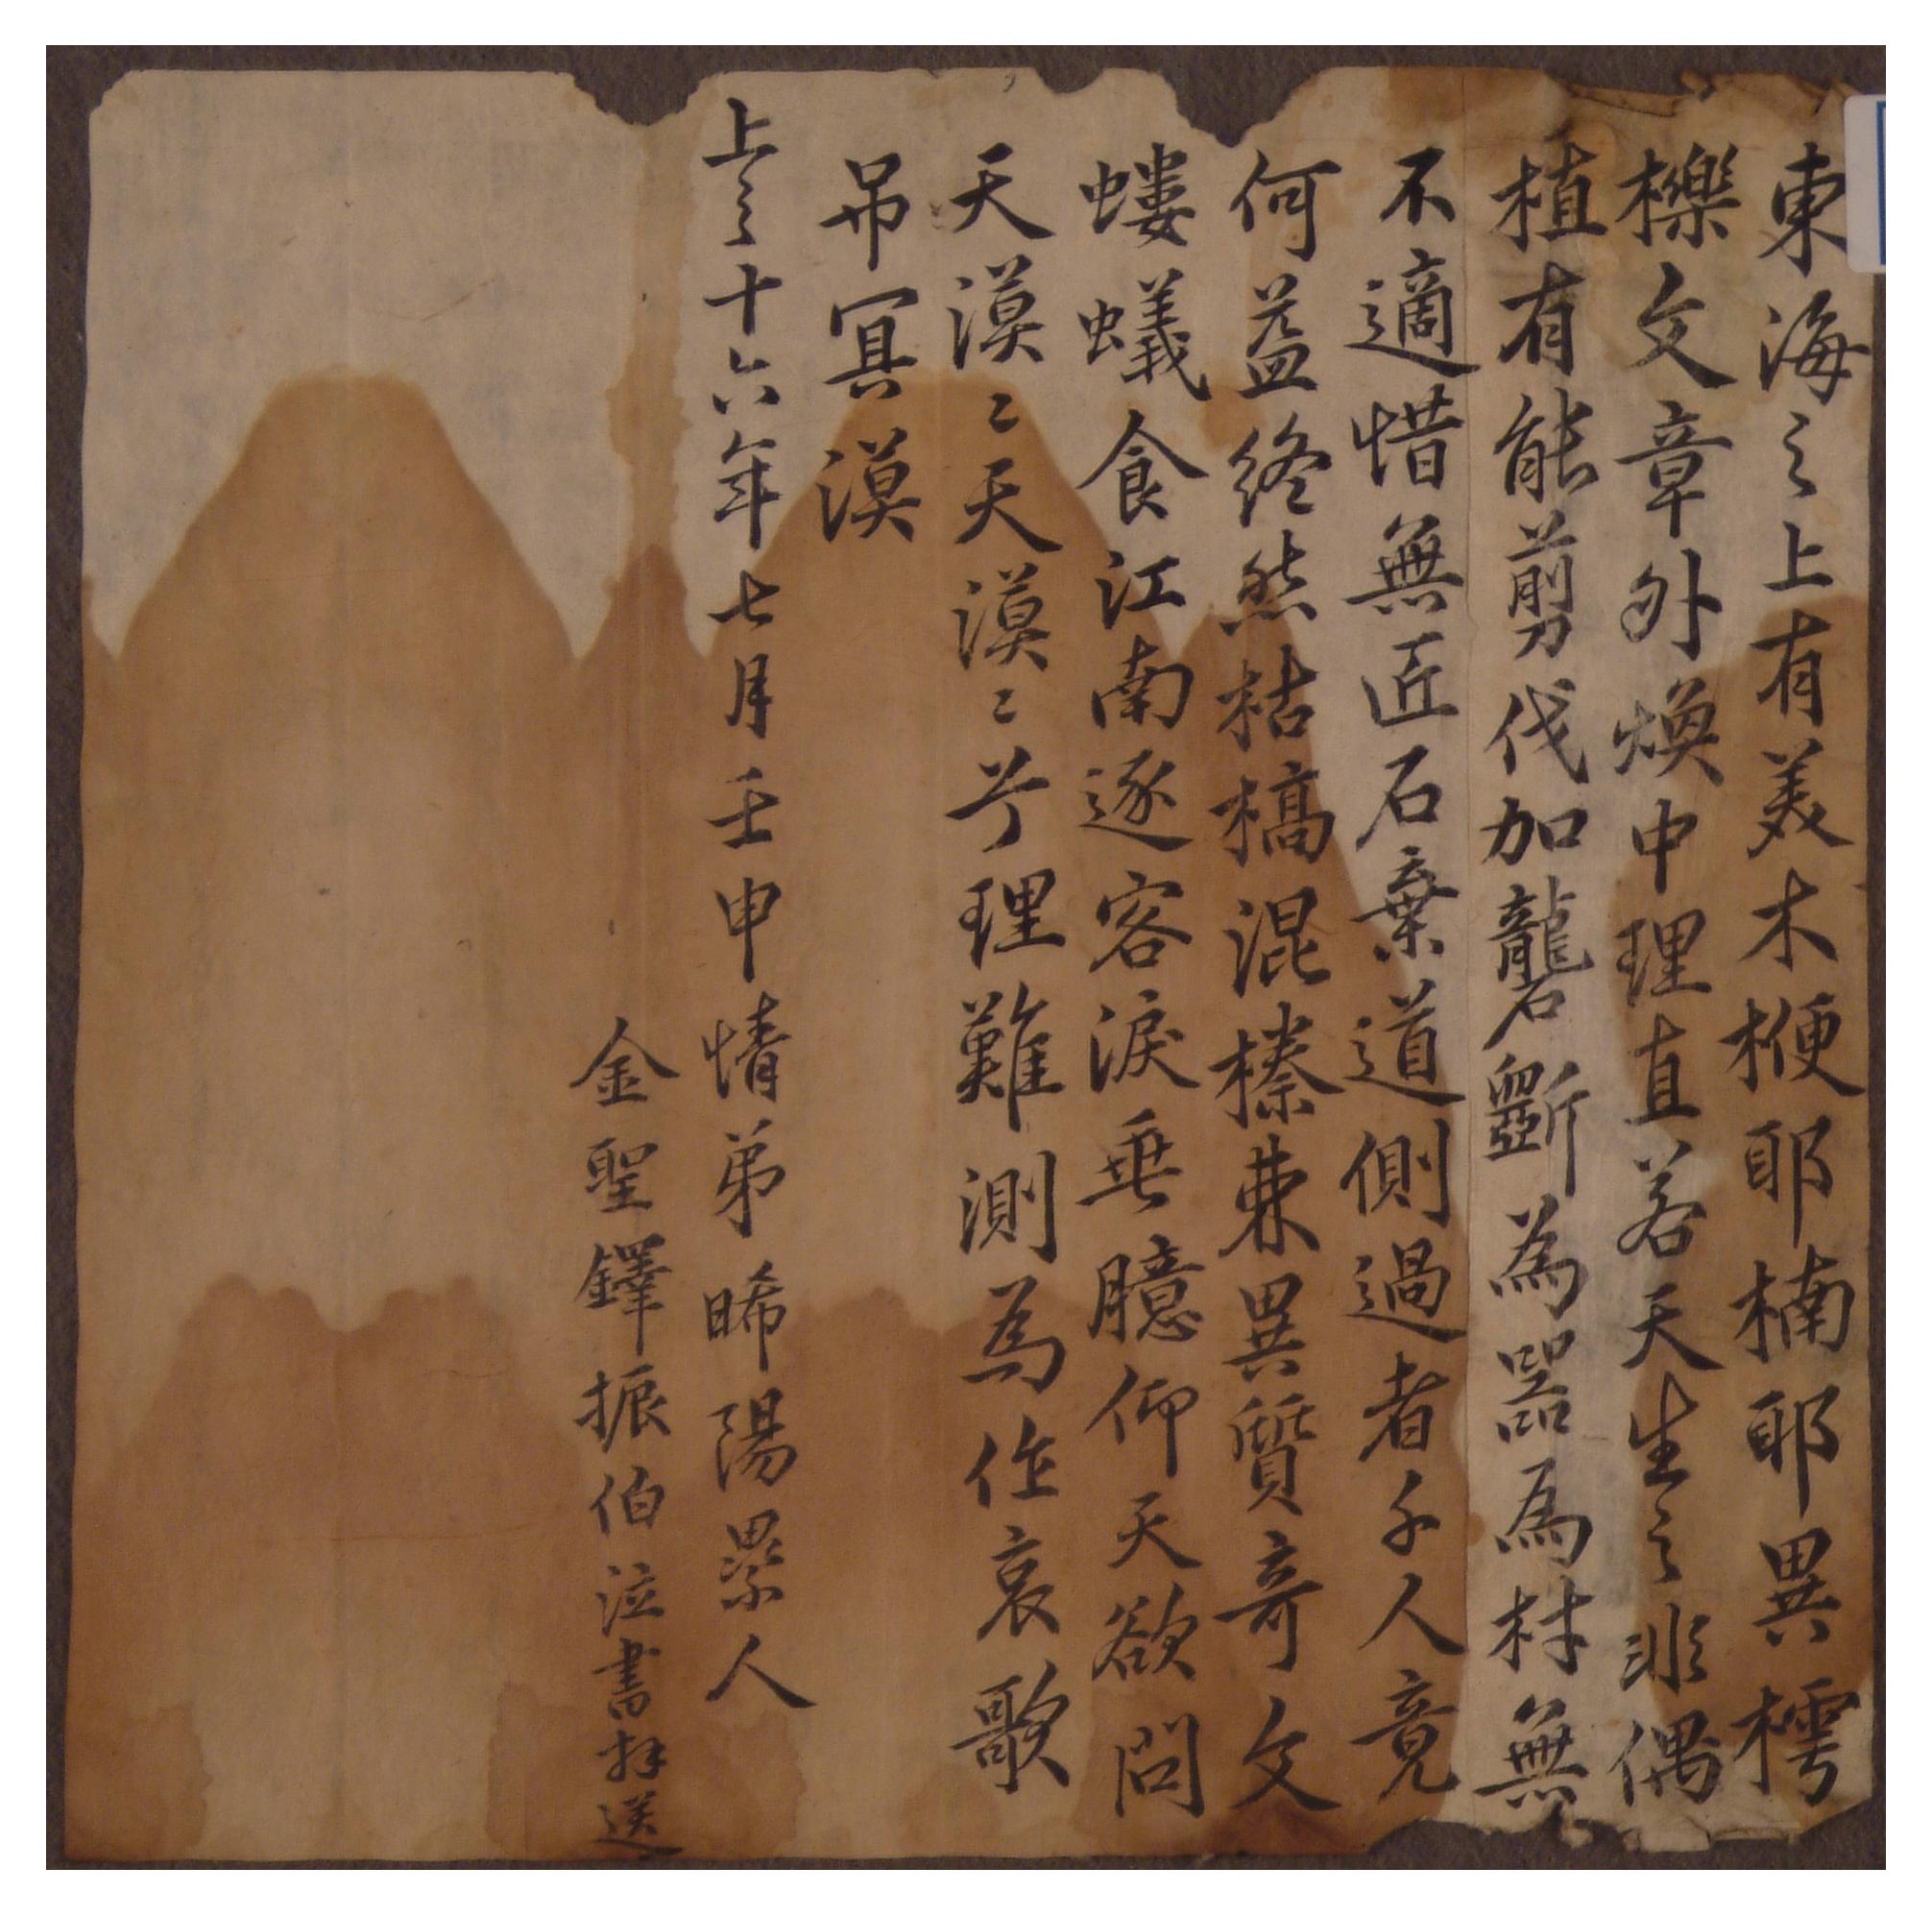 東海之上有美木楩耶楠耶異樗
櫟文章外煥中理直若天生之非偶
植有能剪伐加礱斲為器為材無
不適惜無匠石棄道側過者千人竟
何益終然枯槁混榛棘異質奇文
螻蟻食江南逐客淚垂臆仰天欲問
天漠〻天漠〻兮理難測為作哀歌
吊冥漠
上之十六年七月壬申情弟晞陽累人
金聖鐸振伯泣書拜送